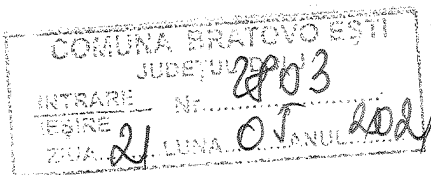 COMUNA BRATOVOEȘTI
JUDEȚUL DOLJ
INTRARE Nr. 2803
IEȘIRE
ZIUA 21 LUNA 05 ANUL 2021